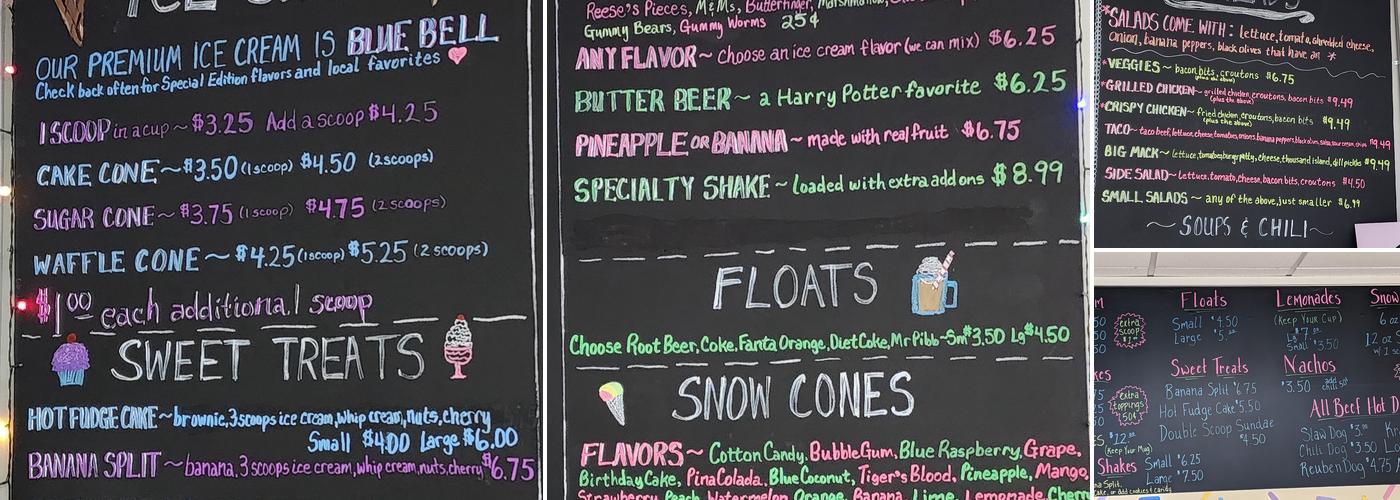 ICE CREAM
OUR PREMIUM ICE CREAM IS BLUE BELL
Check back often for Special Edition flavors and local favorites
1 SCOOP in a cup ~ $3.25 Add a scoop $4.25
CAKE CONE ~ $3.50 (1 scoop) $4.50 (2 scoops)
SUGAR CONE ~ $3.75 (1 scoop) $4.75 (2 scoops)
WAFFLE CONE ~ $4.25 (1 scoop) $5.25 (2 scoops)
$1.00 each additional scoop
SWEET TREATS
HOT FUDGE CAKE ~ brownie, 3 scoops ice cream, whip cream, nuts, cherry
Small $4.00 Large $6.00
BANANA SPLIT ~ banana, 3 scoops ice cream, whip cream, nuts, cherry $6.75
Reese's Pieces, M&Ms, Butterfinger, Marshmallow,
Gummy Bears, Gummy Worms 25¢
ANY FLAVOR ~ choose an ice cream flavor (we can mix) $6.25
BUTTER BEER ~ a Harry Potter favorite $6.25
PINEAPPLE OR BANANA ~ made with real fruit $6.75
SPECIALTY SHAKE ~ loaded with extra add ons $8.99
FLOATS
Choose Root Beer, Coke, Fanta Orange, Diet Coke, Mr Pibb ~ Sm $3.50 Lg $4.50
SNOW CONES
FLAVORS ~ Cotton Candy, Bubble Gum, Blue Raspberry, Grape,
Birthday Cake, Pina Colada, Blue Coconut, Tiger's Blood, Pineapple, Mango,
Strawberry, Peach, Watermelon, Orange, Banana, Lime, Lemonade, Cherry
*SALADS COME WITH: lettuce, tomato, shredded cheese,
onion, banana peppers, black olives that have an *
*VEGGIES ~ bacon bits, croutons $6.75
(plus the above)
*GRILLED CHICKEN ~ grilled chicken, croutons, bacon bits $9.49
(plus the above)
*CRISPY CHICKEN ~ fried chicken, croutons, bacon bits $9.49
(plus the above)
TACO ~ taco beef, lettuce, cheese, tomatoes, onions, banana peppers, black olives, salsa, sour cream, chips $9.49
BIG MACK ~ lettuce, tomatoes, burger patty, cheese, thousand island, dill pickles $9.49
SIDE SALAD ~ lettuce, tomato, cheese, bacon bits, croutons $4.50
SMALL SALADS ~ any of the above, just smaller $6.99
~ SOUPS & CHILI ~
extra scoop
Floats
Small $4.50
Large
Lemonades
(Keep Your Cup)
Small $3.50
Snow
6 oz
12 oz
Sweet Treats
Banana Split $6.75
Hot Fudge Cake $5.50
Double Scoop Sundae
$4.50
extra toppings 50¢
Nachos
$3.50 add chili
All Beef Hot D
Slaw Dog
Chili Dog $3.50
Reuben Dog $4.75
(Keep Your Mug)
Shakes Small $6.25
Large $7.50